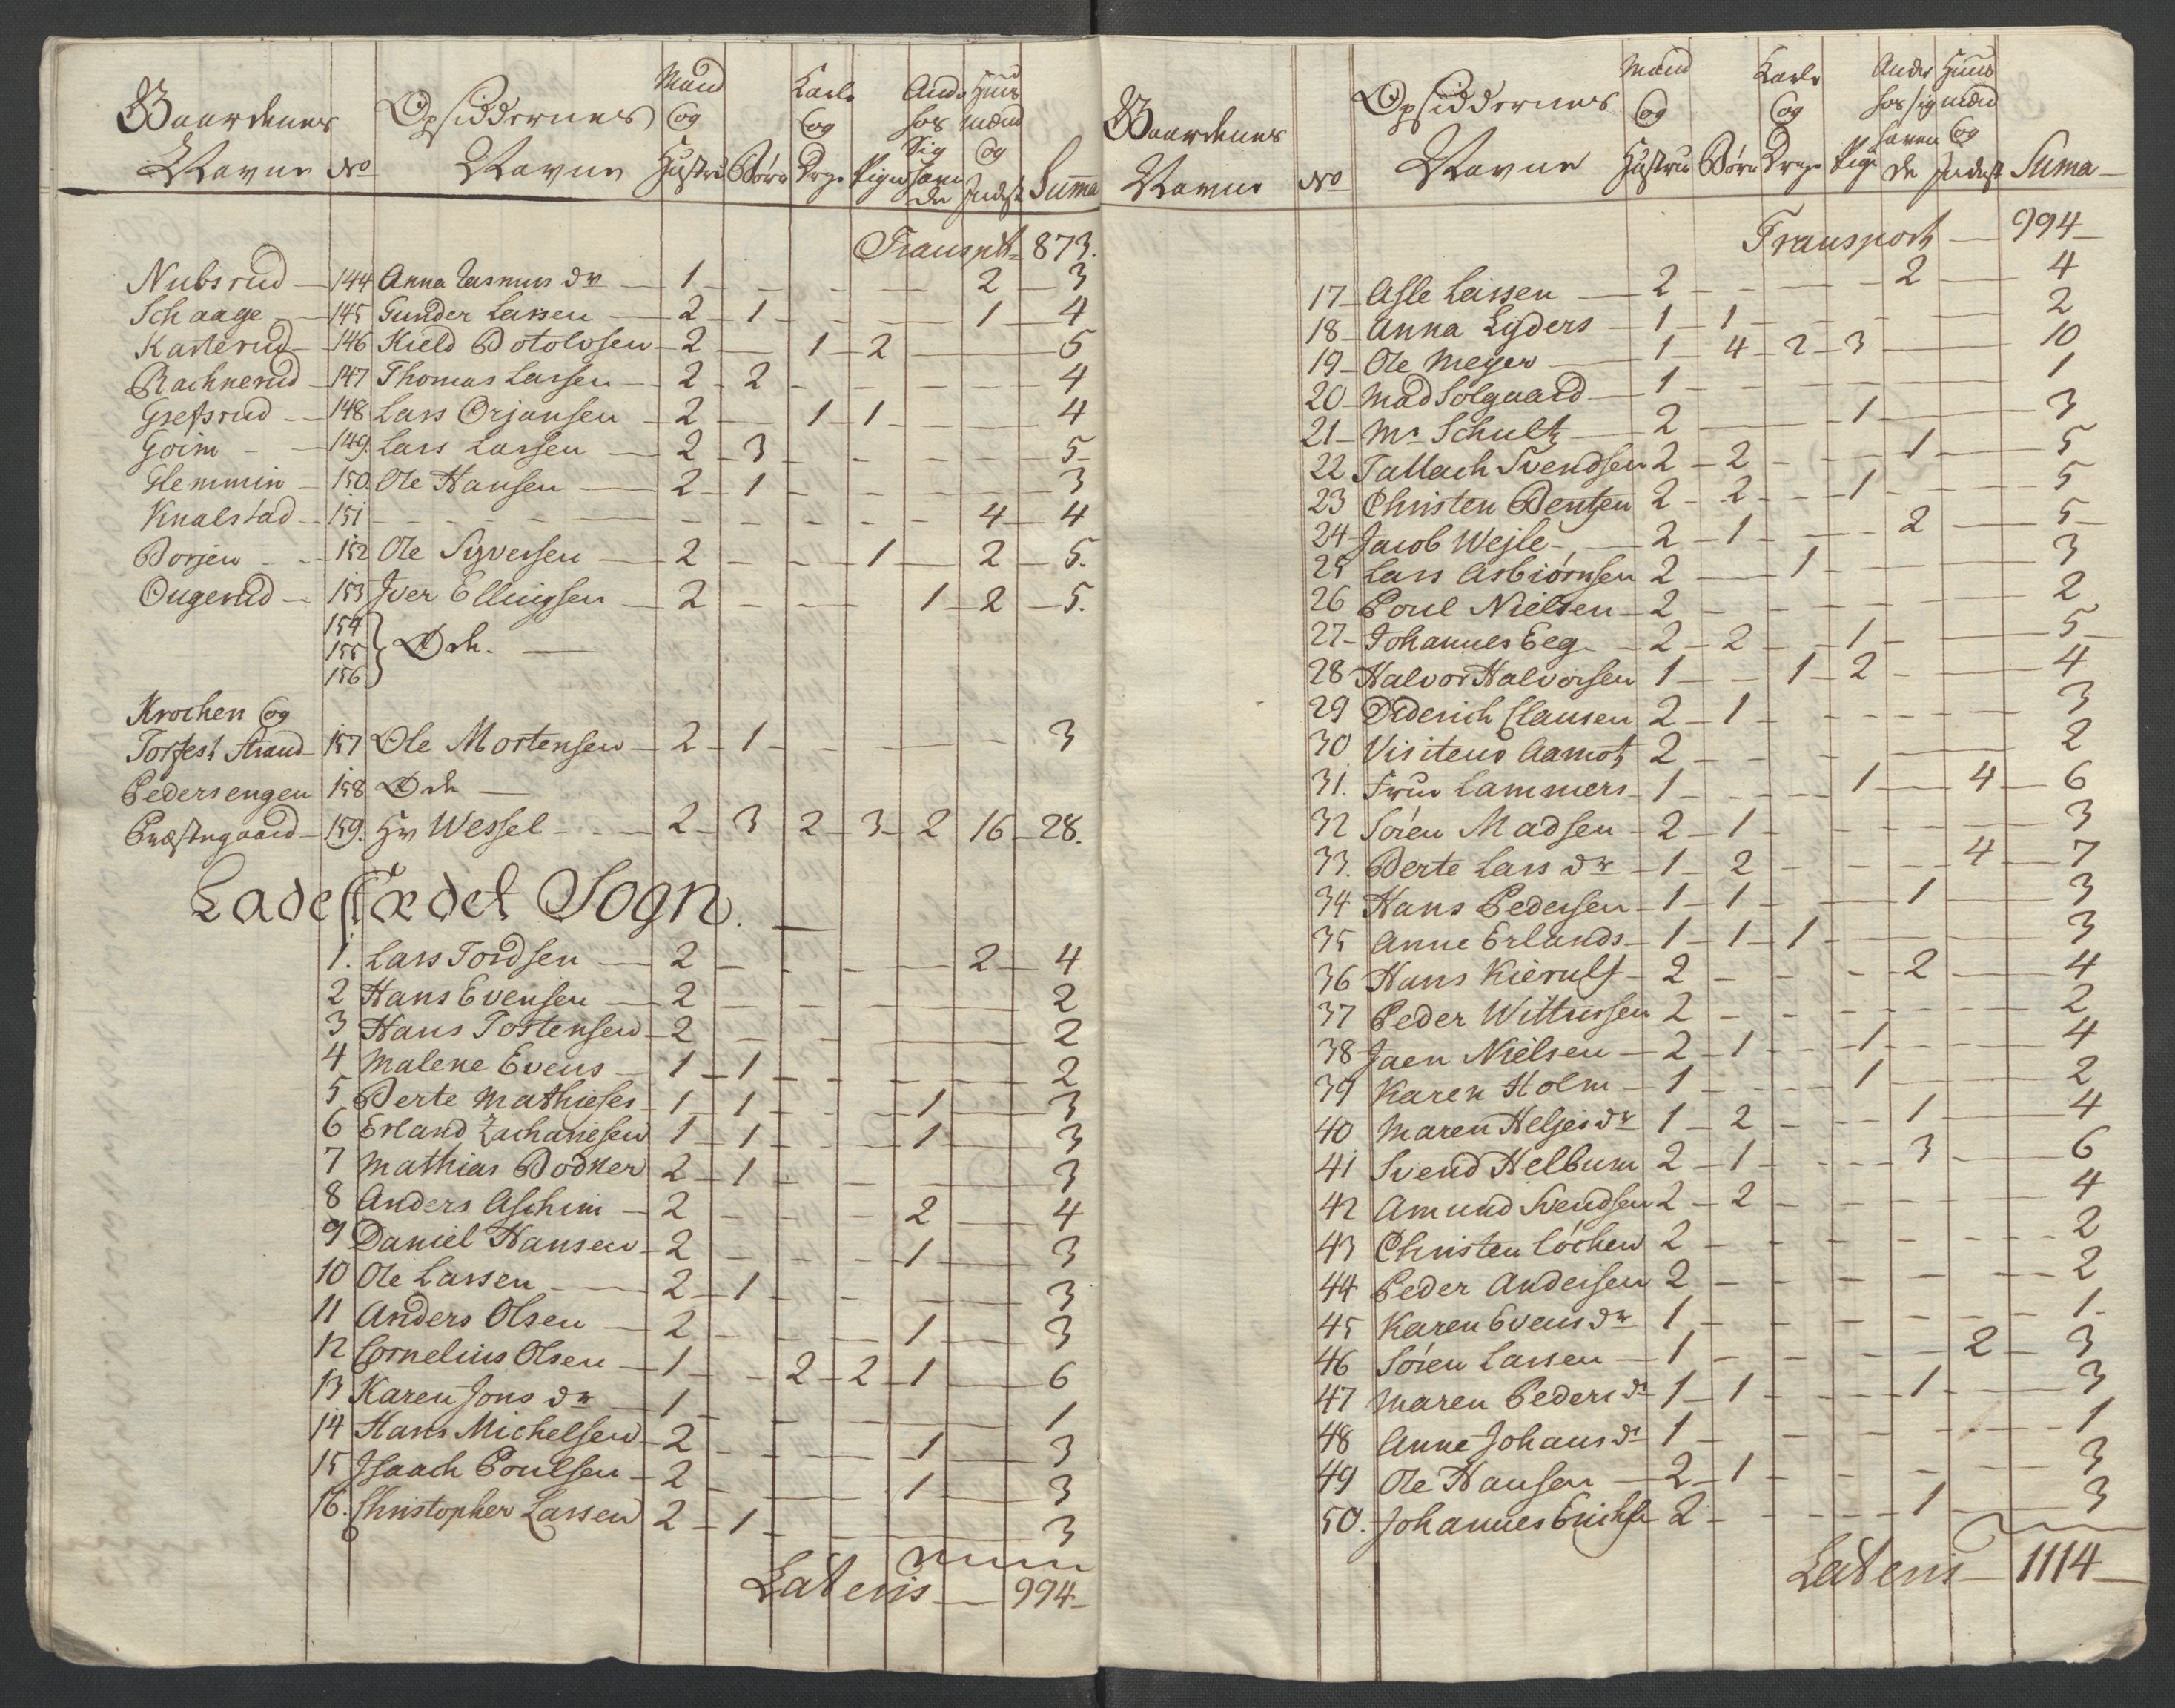 Gaardenes Navne No Opsiddernes Navne Mand og Hustru Børn Karle og Drge Piger Ande hos Sig saa de Huus mænd og Inderst Suma
Transpt 873.
Nubsrud 144 Anna Rasmus dr 1 - - - - 2 3
Schaage 145 Gunder Larsen 2 1 - - - 1 4
Kasterud 146 Kield Botolvsen 2 - 1 2 - - 5
Rachnerud 147 Thomas Larsen 2 2 - - - - 4
Grefsrud 148 Lars Orjansen 2 - 1 1 - - 4
Goim 149. Lars Larsen 2 3 - - - - 5
Glemmin 150. Ole Hansen 2 1 - - - - 3
Knalstad 151 - - - - - - 4 4
Borjen 152 Ole Syversen 2 - - 1 - 2 5.
Ougerud 153 Iver Ellingsen 2 - - - 1 2 5.
154
155 } Øde.
156
Krochen og
Torfest Strand 157 Ole Mortensen 2 1 - - - - 3
Pedersengen 158 Øde
Præstegaard 159. Hr Wessel 2 3 2 3 2 16 28.
Ladestædet Sogn.
1. Lars Tordsen 2 - - - - 2 4
2 Hans Evensen 2 - - - - - 2
3 Hans Tostensen 2 - - - - - 2
4 Malene Evens 1 1 - - - - 2
5 Berte Mathieses 1 1 - - 1 - 3
6 Erland Zachariesen 1 1 - - 1 - 3
7 Mathias Bodker 2 1 - - - - 3
8 Anders Aschim 2 - - - 2 - 4
9 Daniel Hansen 2 - - - 1 - 3
10 Ole Larsen 2 1 - - - - 3
11 Anders Olsen 2 - - - 1 - 3
12 Cornelius Olsen 1 - 2 2 1 - 6
13 Karen Jons dr 1 - - - - - 1
14 Hans Michelsen 2 - - - 1 - 3
15 Isaach Poulsen 2 - - - 1 - 3
16. Christopher Larsen 2 1 - - - - 3
Lateris 994
Gaardenes Navne No Opsiddernes Navne Mand og Hustru Børn Karle og Drge Pige Andre hos sig haven de Huus mænd og Inderst Suma
Transport 994
17 Asle Larssen 2 - - - 2 - 4
18 Anna Lyders 1 1 - - - - 2
19 Ole Meyer 1 4 2 3 - - 10
20 Mad Solgaard 1 - - - - - 1
21 Mr Schultz 2 - - 1 - - 3
22 Tallach Svendsen 2 2 - - 1 - 5
23 Christen Bentsen 2 2 - 1 - - 5
24 Jacob Wejle 2 1 - - 2 - 5
25 Lars Asbiørnsen 2 - 1 - - - 3
26 Poul Nielsen 2 - - - - - 2
27 Johannes Eeg 2 2 - 1 - - 5
28 Halvor Halvorsen 1 - 1 2 - - 4
29 Diderich Clausen 2 1 - - - - 3
30 Visiteur Aamot 2 - - - - - 2
31. Frue Lammers 1 - - 1 - 4 6
32 Sören Madsen 2 1 - - - - 3
33. Berte Lars dr 1 2 - - - 4 7
34 Hans Pedersen 1 1 - - 1 - 3
35 Anne Erlands 1 1 1 - - - 3
36 Hans Kierulf 2 - - - 2 - 4
37 Peder Wittussen 2 - - - - - 2
38 Jaen Nielsen 2 1 - 1 - - 4
39 Karen Holm 1 - - 1 - - 2
40 Maren Heljes dr 1 2 - - 1 - 4
41 Svend Helbum 2 1 - - 3 - 6
42 Amund Svendsen 2 2 - - - - 4
43 Christen Cöchen 2 - - - - - 2
44 Peder Andersen 2 - - - - - 2
45 Karen Evens dr 1 - - - - - 1
46 Sören Larsen 1 - - - - 2 3
47 Maren Peders dr 1 1 - - 1 - 3
48 Anne Johans dr 1 - - - - - 1
49 Ole Hansen 2 1 - - - - 3
50. Johannes Erichse 2 - - - 1 - 3
Lateris 1114